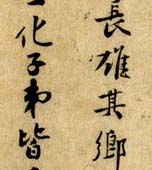 長雄其鄉
化子弟皆